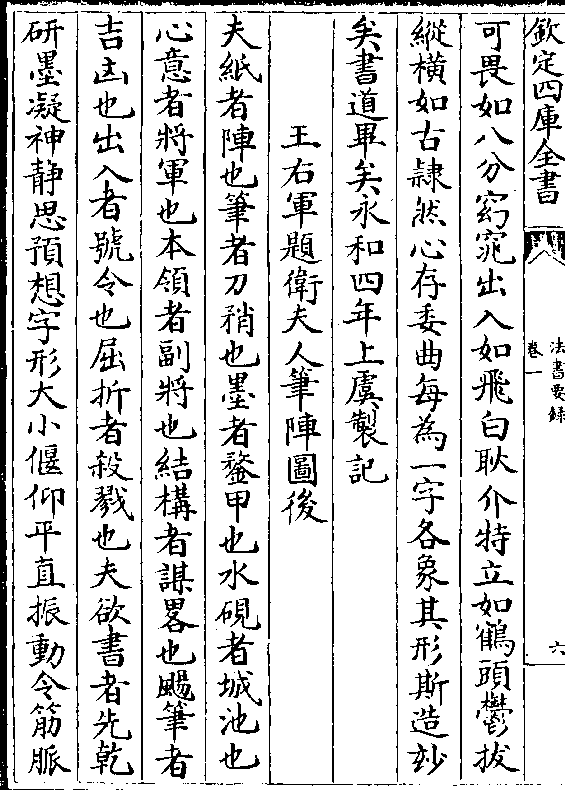 欽定四庫全書
法書要録
卷一
六
可畏如八分窈窕出入如飛白耿介特立如鶴頭鬱拔
縱横如古隷然心存委曲每為一字各象其形斯造妙
矣書道畢矣永和四年上虞製記
王右軍題衛夫人筆陣圖後
夫紙者陣也筆者刀矟也墨者鍪甲也水硯者城池也
心意者將軍也本領者副將也結構者謀畧也颺筆者
吉凶也出入者號令也屈折者殺戮也夫欲書者先乾
研墨凝神静思預想字形大小偃仰平直振動令筋脈